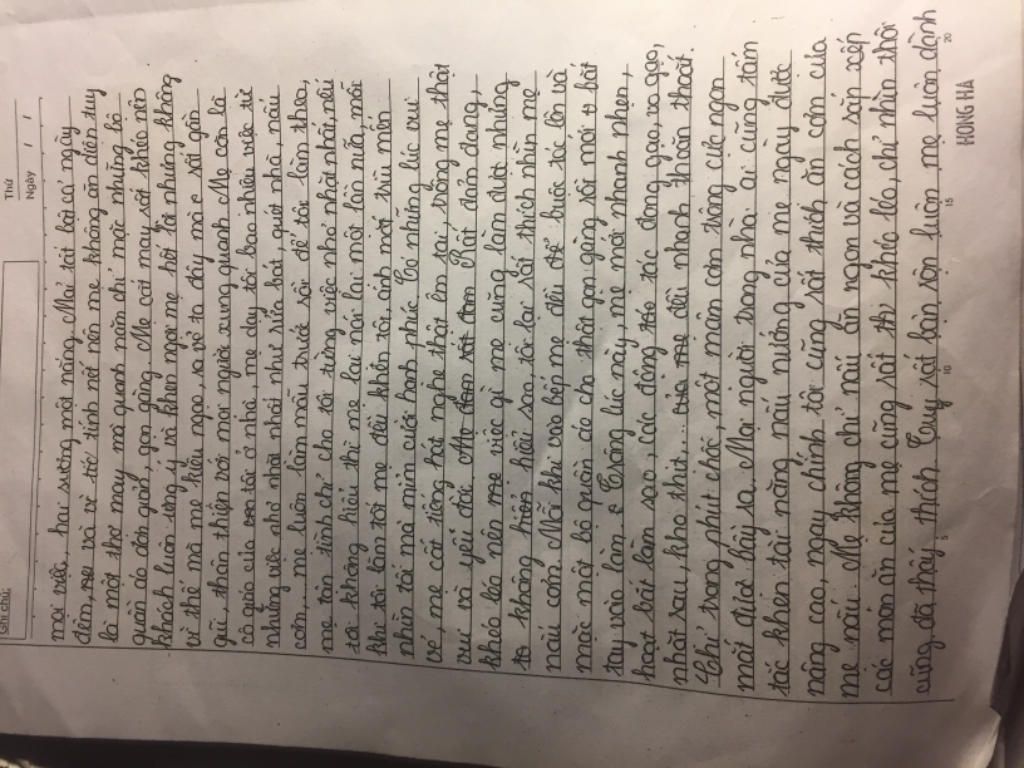 Ghi chú:
Thứ
Ngày / /
mọi việc, hai sương một nắng. Mẹ tất bật cả ngày
đêm, và vì tóc tính nết nên mẹ không ăn diện tuy
là một thợ may mà quanh năm chỉ mặc những bộ
quần áo đơn giản, gọn gàng. Mẹ cắt may rất khéo nên
khách luôn ưng ý và khen ngợi mẹ hết lời nhưng không
vì thế mà mẹ kiêu ngạo, ra vẻ ta đây mà rất gần
gũi, thân thiện với mọi người xung quanh. Mẹ còn là
cô giáo của tôi ở nhà, mẹ dạy tôi bao nhiêu việc từ
những việc nhỏ nhặt nhất như rửa bát, quét nhà, nấu
cơm, mẹ luôn làm mẫu trước rồi để tôi làm theo,
mẹ tận tình chỉ cho tôi từng việc nhỏ nhặt nhất, nếu
tôi không hiểu thì mẹ lại nói lại một lần nữa, mỗi
khi tôi làm tốt mẹ đều khen tôi, ánh mắt trìu mến
nhìn tôi mà mỉm cười hạnh phúc. Có những lúc vui
vẻ, mẹ cất tiếng hát nghe thật êm tai, trông mẹ thật
vui và yêu đời. Mẹ rất đảm đang,
khéo léo nên việc gì mẹ cũng làm được nhưng
không hiểu sao, tôi lại rất thích nhìn mẹ
nấu cơm. Mỗi khi vào bếp mẹ đều để buộc tóc lên và
mặc một bộ quần áo cho thật gọn gàng rồi mới bắt
tay vào làm. Trông lúc này, mẹ mới nhanh nhẹn,
hoạt bát làm sao, các động tác đong gạo, vo gạo,
nhặt rau, kho thịt,... đều nhanh thoăn thoắt.
Chỉ trong phút chốc, một mâm cơm trông cực ngon
mắt được bày ra. Mọi người trong nhà ai cũng tấm
tắc khen tài năng nấu nướng của mẹ ngày được
nâng cao, ngay chính tôi cũng rất thích ăn cơm của
mẹ nấu. Mẹ không chỉ nấu ăn ngon và cách sắp xếp
các món ăn của mẹ cũng rất thì khéo léo, chỉ nhìn thôi
cũng đã thấy thích. Tuy rất bận rộn luôn mẹ luôn dành
5 10 15 20
HONG HA